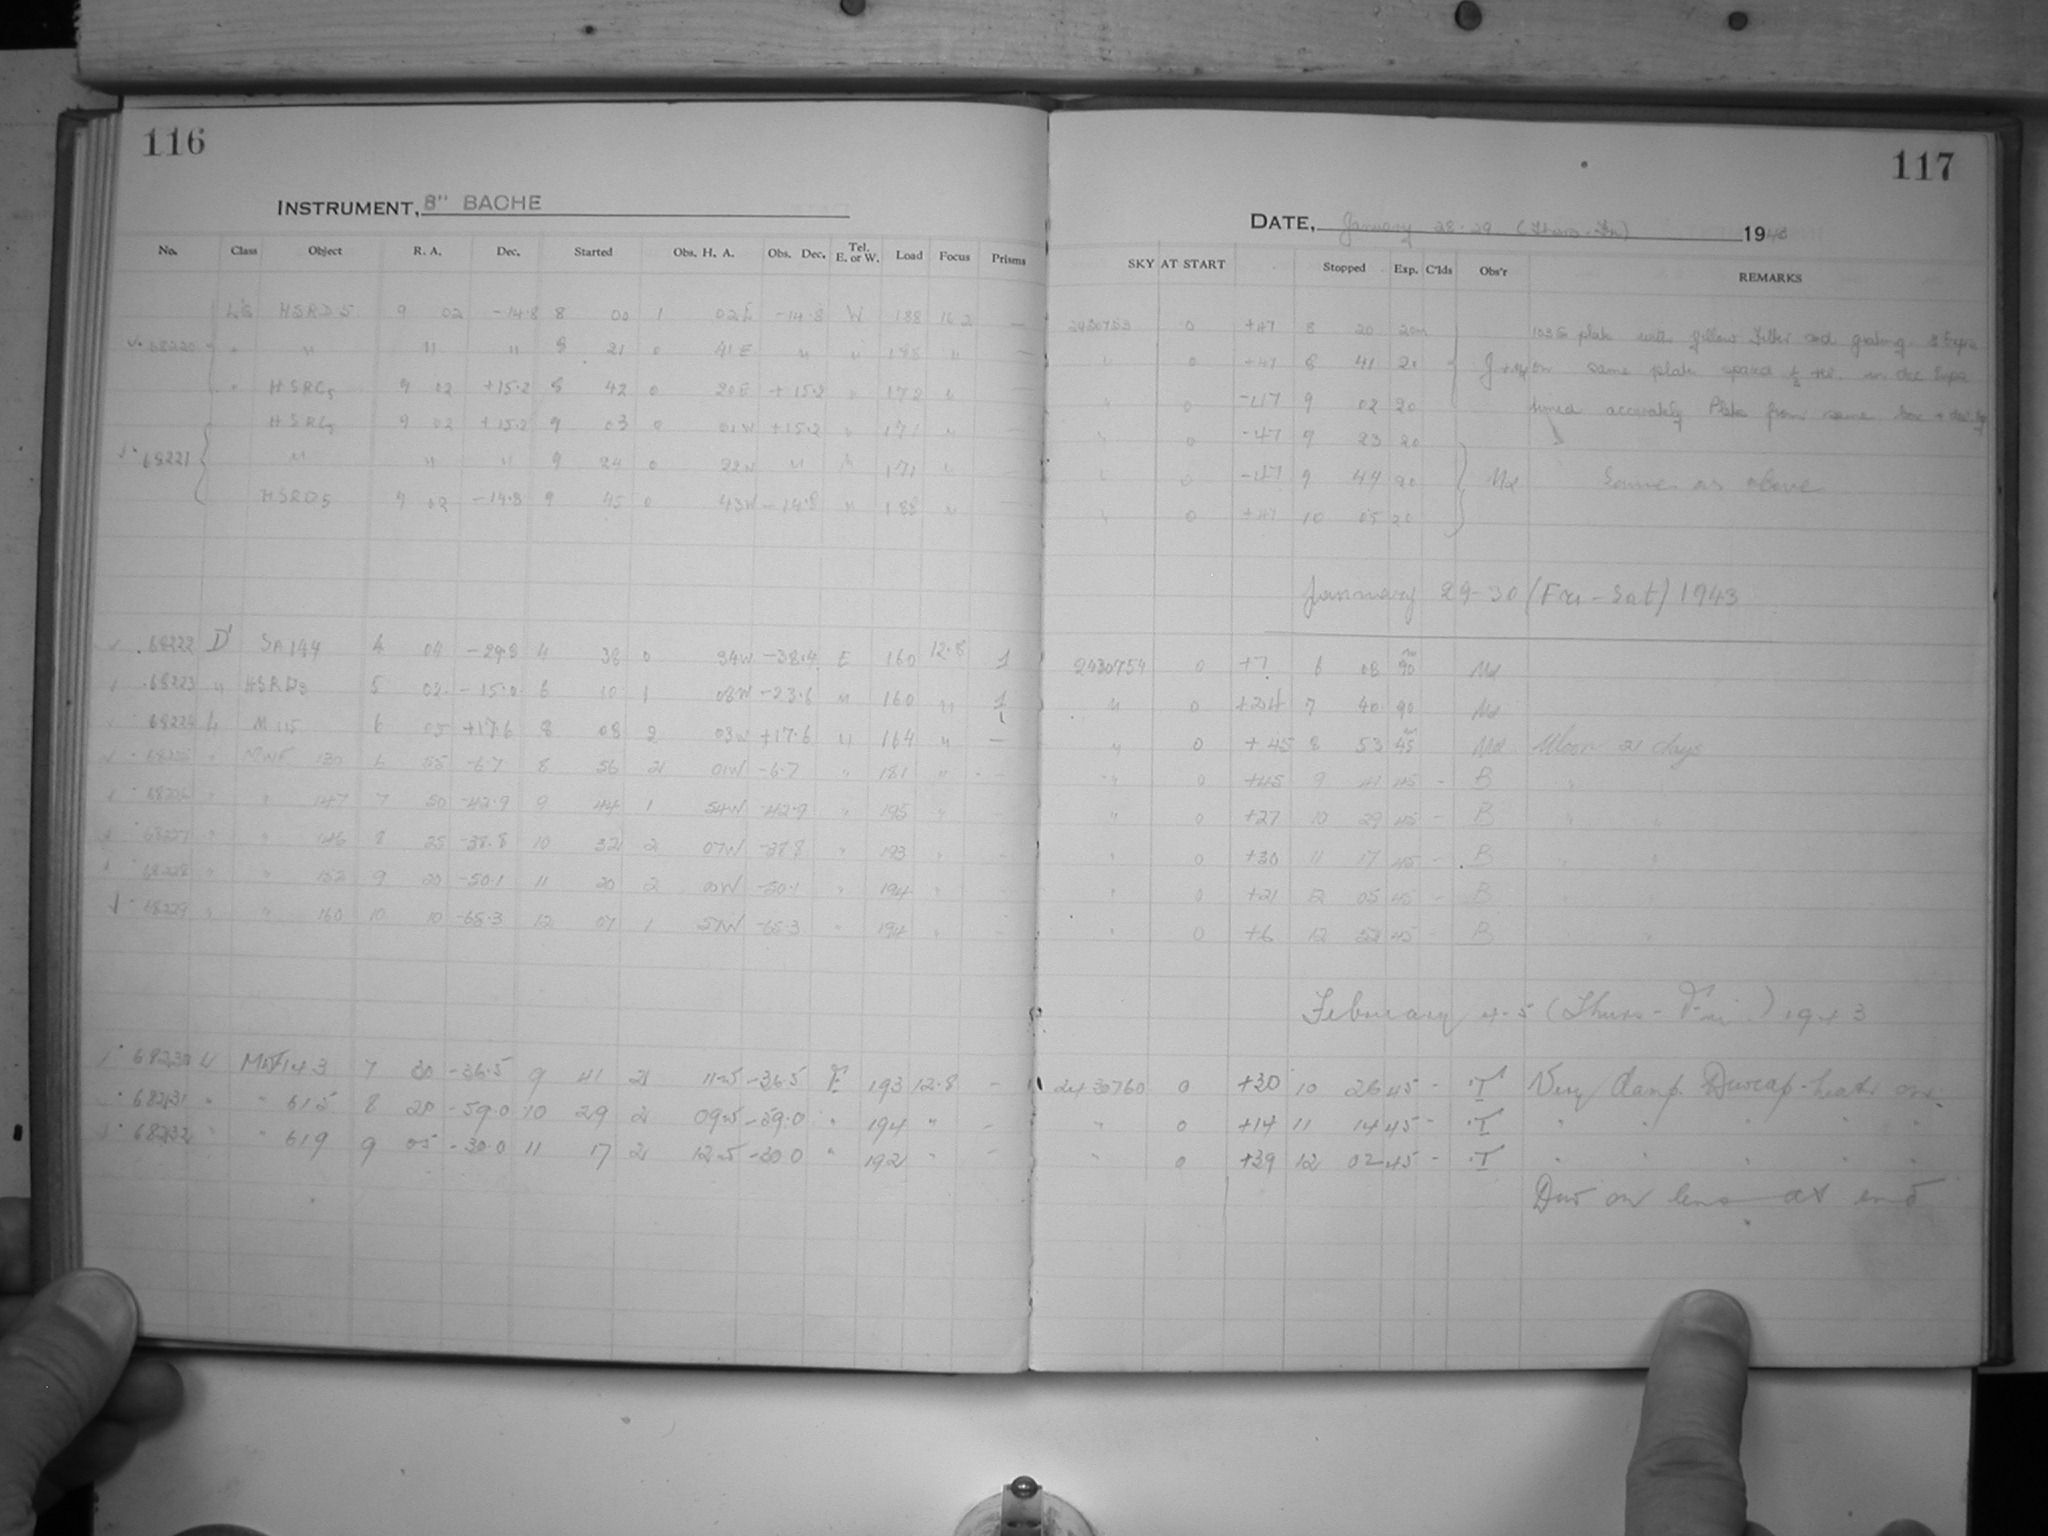 116
INSTRUMENT, 8" BACHE
No. Class Object R. A. Dec. Started Obs. H. A. Obs. Dec. Tel. E. or W. Load Focus Prisms
HSRD5 9 02 -14.8 8 00 1 02E -14.8 W 188 —
68220 " " " " 8 21 0 41E " " "
" HSRC5 9 02 +15.2 8 42 0 20E +15.2 " 172 "
HSRC5 9 02 +15.2 9 03 0 01W +15.2 " 171 "
68221 " " " 9 24 0 22W " " 171 "
HSRD5 9 02 -14.8 9 45 0 43W -14.8 " 188 "
68222 D' SA144 4 04 -29.8 4 38 0 34W -38.4 E 160 12.8 1
68223 " 5 02 -15.0 6 10 1 08W -23.6 " 160 " 1
68224 M 115 6 05 +17.6 8 08 2 03W +17.6 " 164 " —
68225 " MWF 130 6 55 -6.7 8 56 2 01W -6.7 " 181 "
68226 " " 147 7 50 -42.9 9 44 1 54W -42.9 " 195 "
68227 " " 146 8 25 -38.8 10 32 2 07W -38.8 " 193 "
68228 " " 152 9 20 -50.1 11 20 2 00W -50.1 " 194 "
68229 " " 160 10 10 -65.3 12 07 1 57W -65.3 " 194 "
68230 MWF143 7 30 -36.5 9 41 2 11W -36.5 E 193 12.8 -
68231 " " 615 8 20 -59.0 10 29 2 09W -59.0 " 194 " -
68232 " " 619 9 05 -30.0 11 17 2 12W -30.0 " 192 " -
117
DATE, January 28-29 (Thurs-Fri) 1943
SKY AT START Stopped Exp. C'lds Obs'r REMARKS
2430753 0 +47 8 20 20m plate with yellow filter and grating. 3 Exps
" 0 +47 8 41 20 on same plate spaced in dec Exps
" 0 -47 9 02 20 timed accurately Plate from same box
" 0 -47 9 23 20
" 0 -47 9 44 20 Md Same as above
" 0 +47 10 05 20
January 29-30 (Fri-Sat) 1943
2430754 0 +7 6 08 90 Md
" 0 +24 7 40 90 Md
" 0 +45 8 53 45 Md Moon 21 days
" 0 +45 9 41 45 - B "
" 0 +27 10 29 45 - B " "
" 0 +30 11 17 45 - B " "
" 0 +21 12 05 45 - B " "
" 0 +6 12 52 45 - B " "
February 4-5 (Thurs-Fri.) 1943
2430760 0 +30 10 26 45 - T Very damp. Dewcap-heat on.
" 0 +14 11 14 45 - T " " " " "
" 0 +39 12 02 45 - T " " " " "
Dew on lens at end